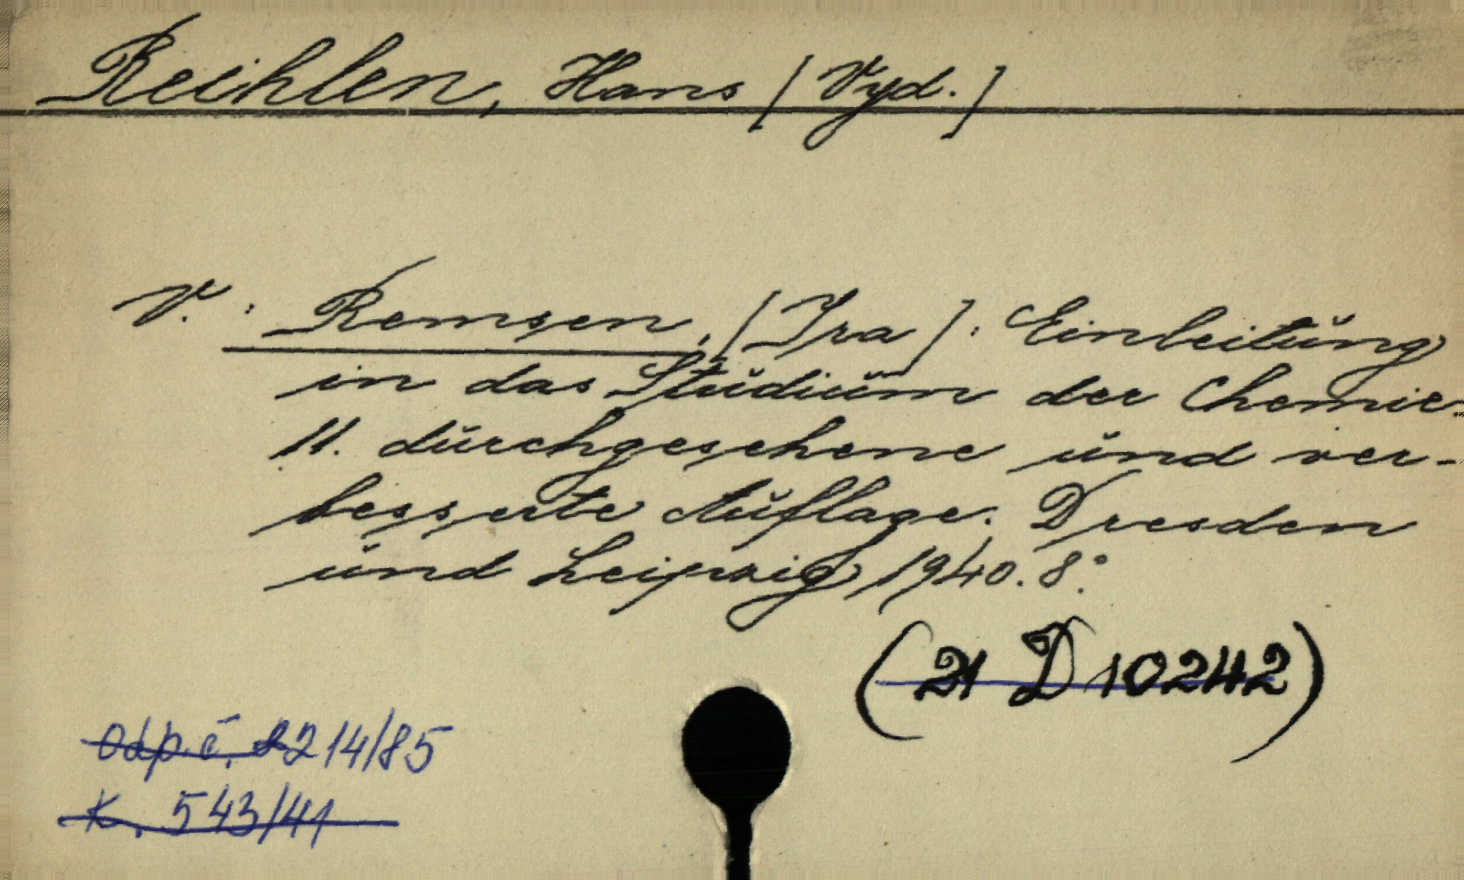 Reihlen, Hans [Vyd.]
V.: Remsen, [Ira]: Einleitung
in das Studium der Chemie.
11. durchgesehene und ver-
besserte Auflage. Dresden
und Leipzig 1940. 8°.
(21 D 10242)
Odp. č. 2214/85
K. 543/41